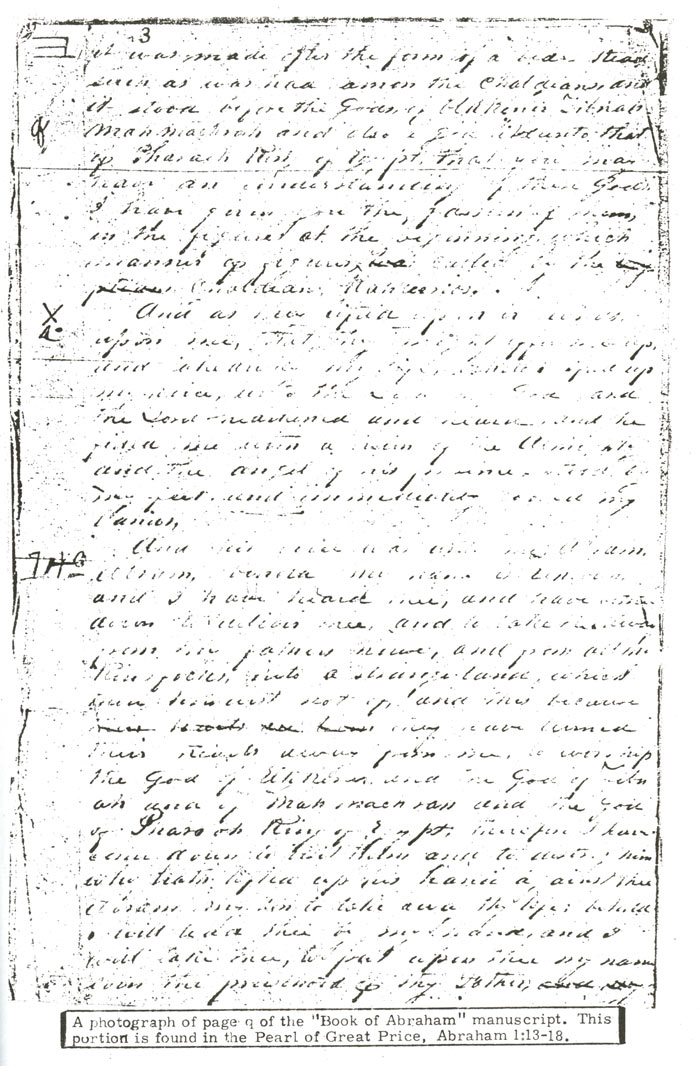 3
it was made after the form of a bedstead
such as was had among the Chaldeans and
it stood before the Gods of Elkkener Zibnah
Mahmachrah and also a God like unto that
of Pharaoh King of Egypt that you may
have an understanding of these Gods
I have given you the fassion of them
in the figures at the beginning which
manner of figures is called by the
Chaldeans
And as they lifted up
upon me, that they might
and take away my life, I lifted up
my voice, unto the Lord my God and
the Lord hearkened and heard and he
filled me with a vision of the Almighty
and the angel of his presence stood by
my feet and immediately loosed my
bands,
And his voice was unto me, Abram,
Abram, behold my name is
and I have heard thee, and have come
down to deliver thee, and to take thee away
from thy fathers house, and from all thy
into a strange land, which
thou knowest not of, and this because
they have turned
their hearts away from me, to worship
the God of Elkkener and the God of Zibn
ah and of Mahmachrah and the God
of Pharaoh King of Egypt; therefore I have
come down to visit them and to destroy him
who hath lifted up his hand against thee
Abram my son to take away thy life; behold
I will lead thee by my hand, and I
will take thee, to put upon thee my name
even the priesthood of thy Father,
A photograph of page q of the "Book of Abraham" manuscript. This
portion is found in the Pearl of Great Price, Abraham 1:13-18.